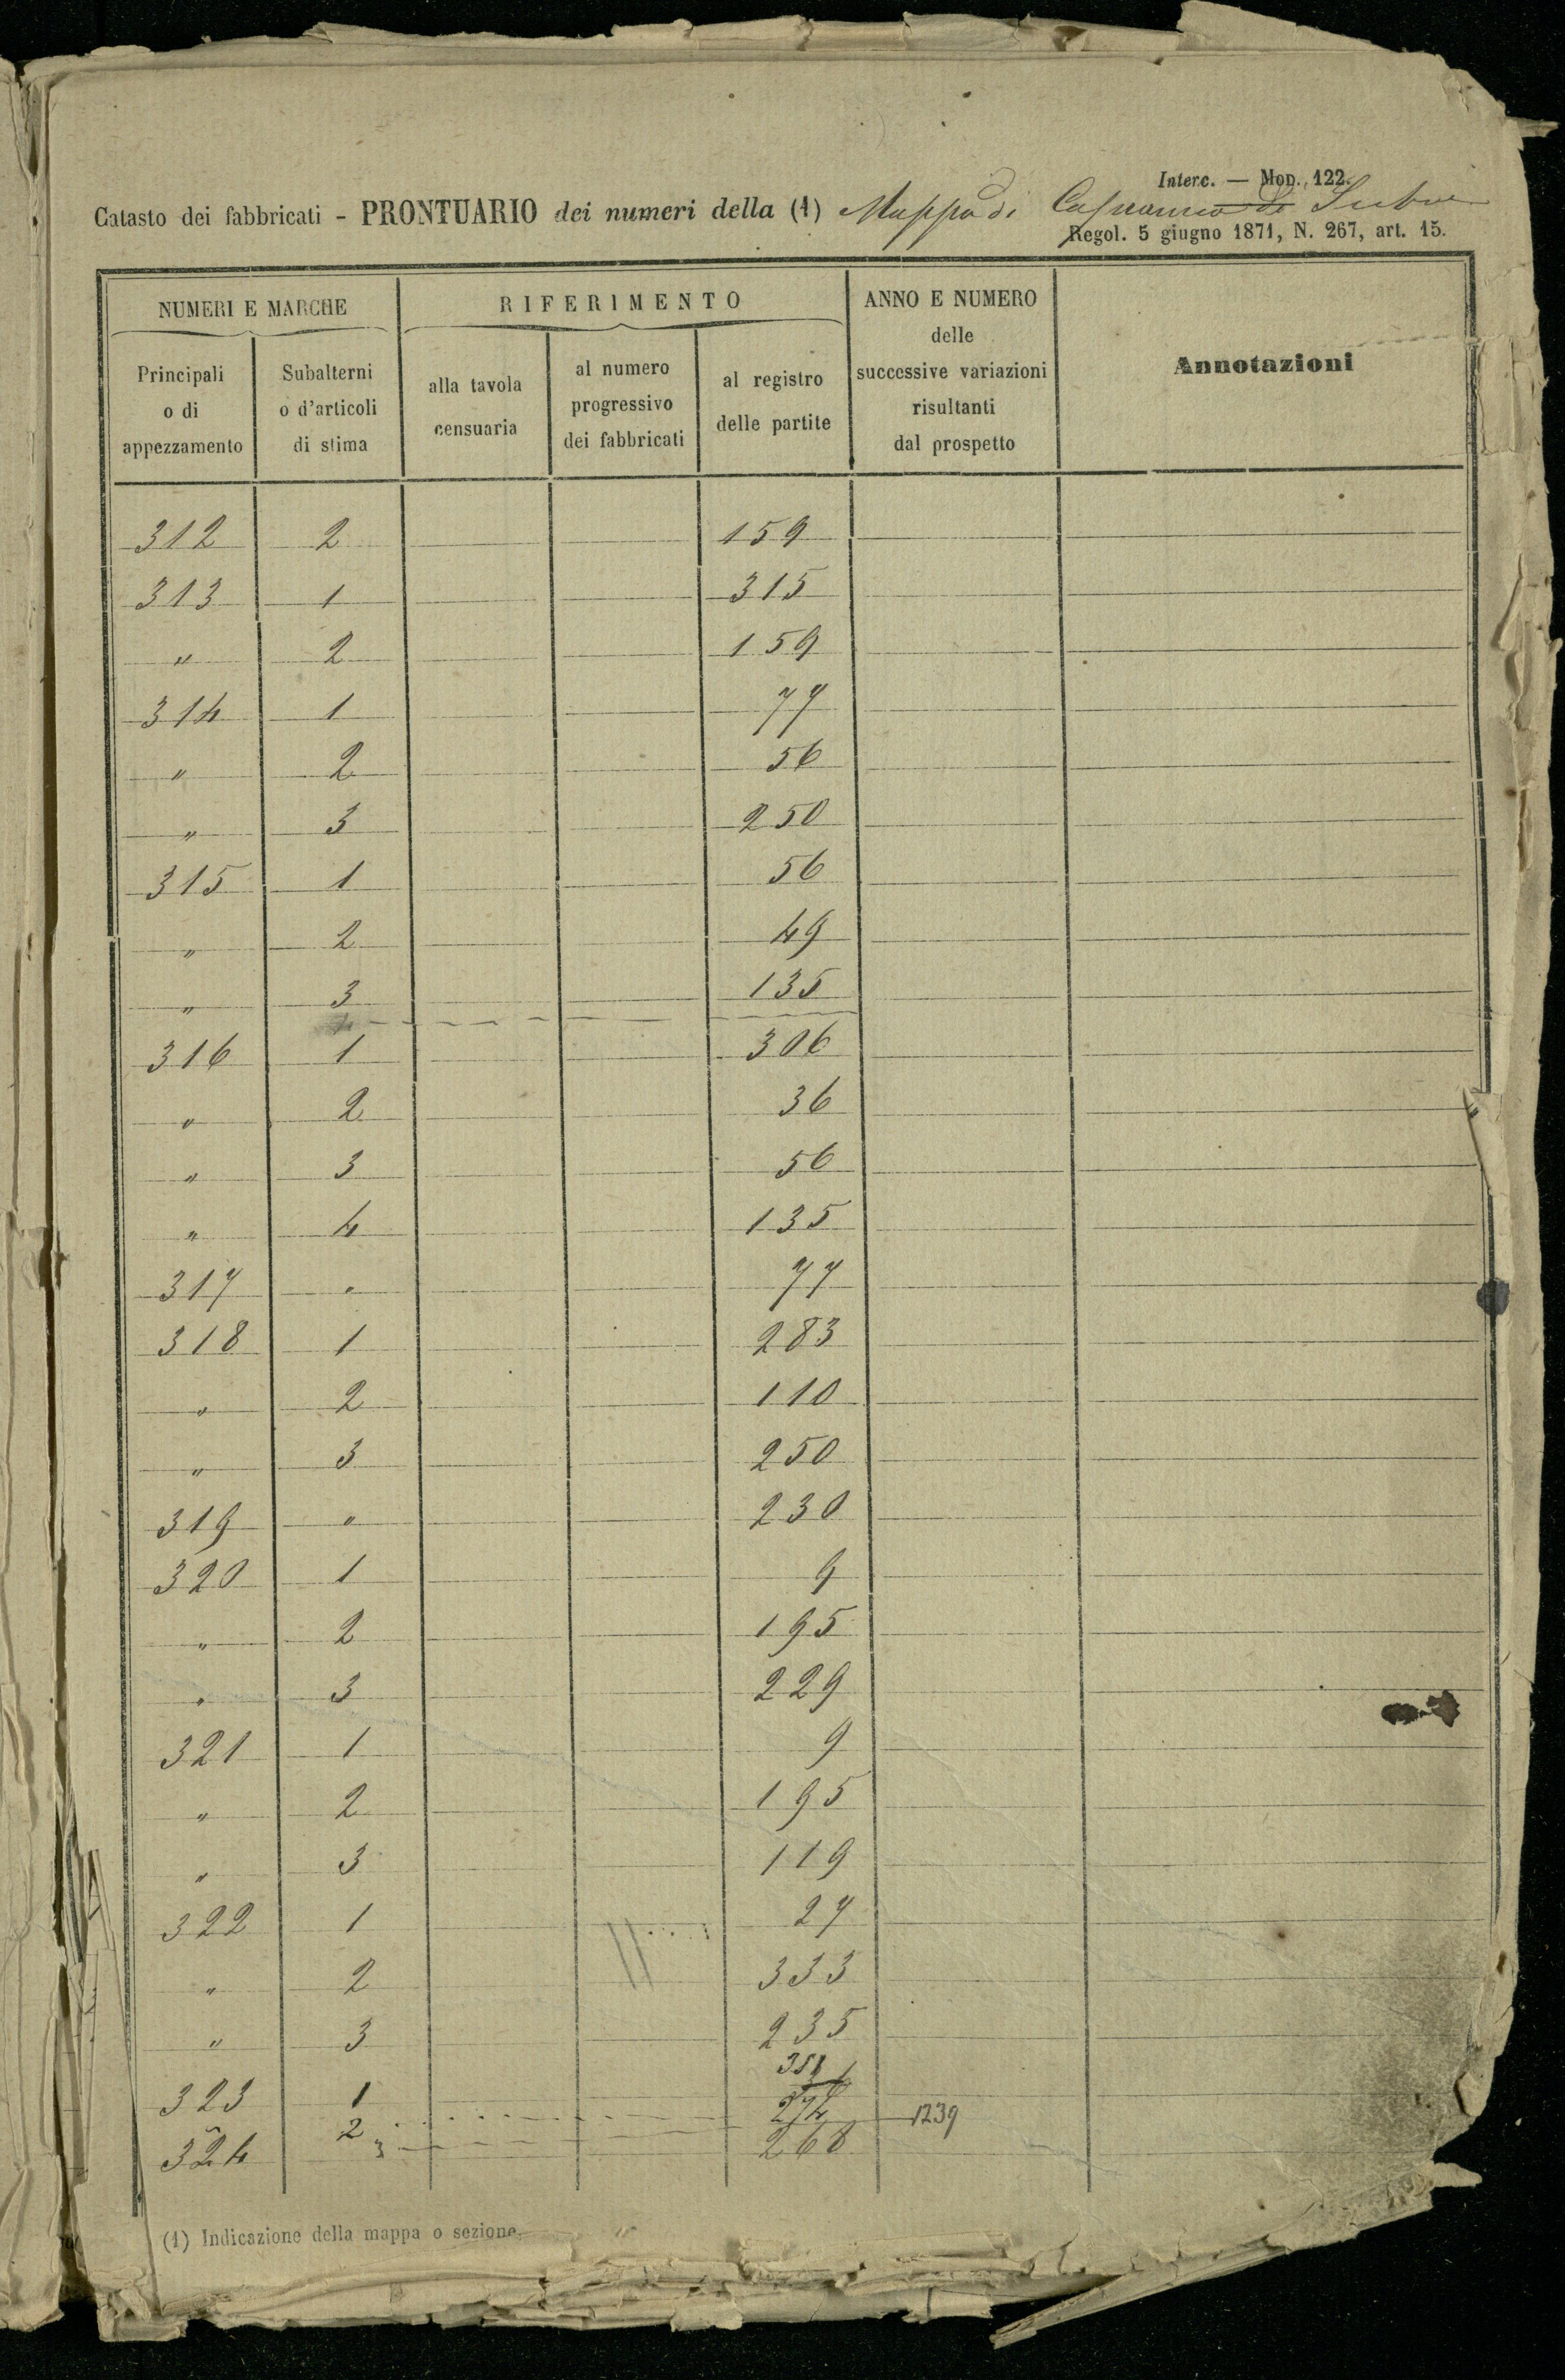 Interc. — Mod. 122.
Catasto dei fabbricati - PRONTUARIO dei numeri della (1) Mappa di
Regol. 5 giugno 1871, N. 267, art. 15.
NUMERI E MARCHE
RIFERIMENTO
ANNO E NUMERO
delle
successive variazioni
risultanti
dal prospetto
Annotazioni
Principali
o di
appezzamento
Subalterni
o d'articoli
di stima
alla tavola
censuaria
al numero
progressivo
dei fabbricati
al registro
delle partite
312 2 159
313 1 315
" 2 159
314 1 77
" 2 56
" 3 250
315 1 56
" 2 49
" 3 135
316 1 306
" 2 36
" 3 56
" 4 135
317 " 77
318 1 283
" 2 110
" 3 250
319 " 230
320 1 9
" 2 195
" 3 229
321 1 9
" 2 195
" 3 119
322 1 27
" 2 333
" 3 235
323 1 274 1239
2
3
324 268
(1) Indicazione della mappa o sezione.